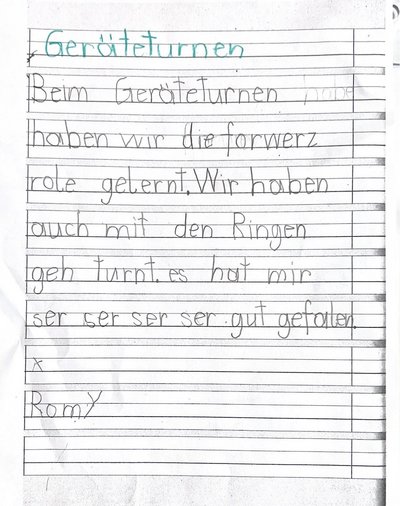 Geräteturnen
Beim Geräteturnen habe
haben wir die forwerz
role gelernt. Wir haben
auch mit den Ringen
geh turnt. es hat mir
ser ser ser ser gut gefalen.
x
Romy